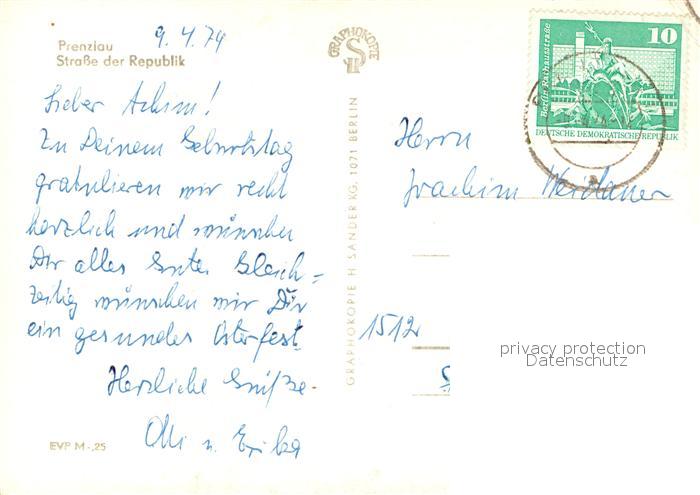 9.4.79
Prenzlau
Straße der Republik
GRAPHOKOPIE
H S
10
Berlin, Rathausstraße
DEUTSCHE DEMOKRATISCHE REPUBLIK
Lieber Achim!
Zu Deinem Geburtstag
gratulieren wir recht
herzlich und wünschen
Dir alles Gute. Gleich=
zeitig wünschen wir Dir
ein gesundes Osterfest.
Herzliche Grüße.
Olli u. Erika
EVP M -,25
GRAPHOKOPIE H SANDER KG, 1071 BERLIN
Herrn
Joachim
1512
privacy protection
Datenschutz